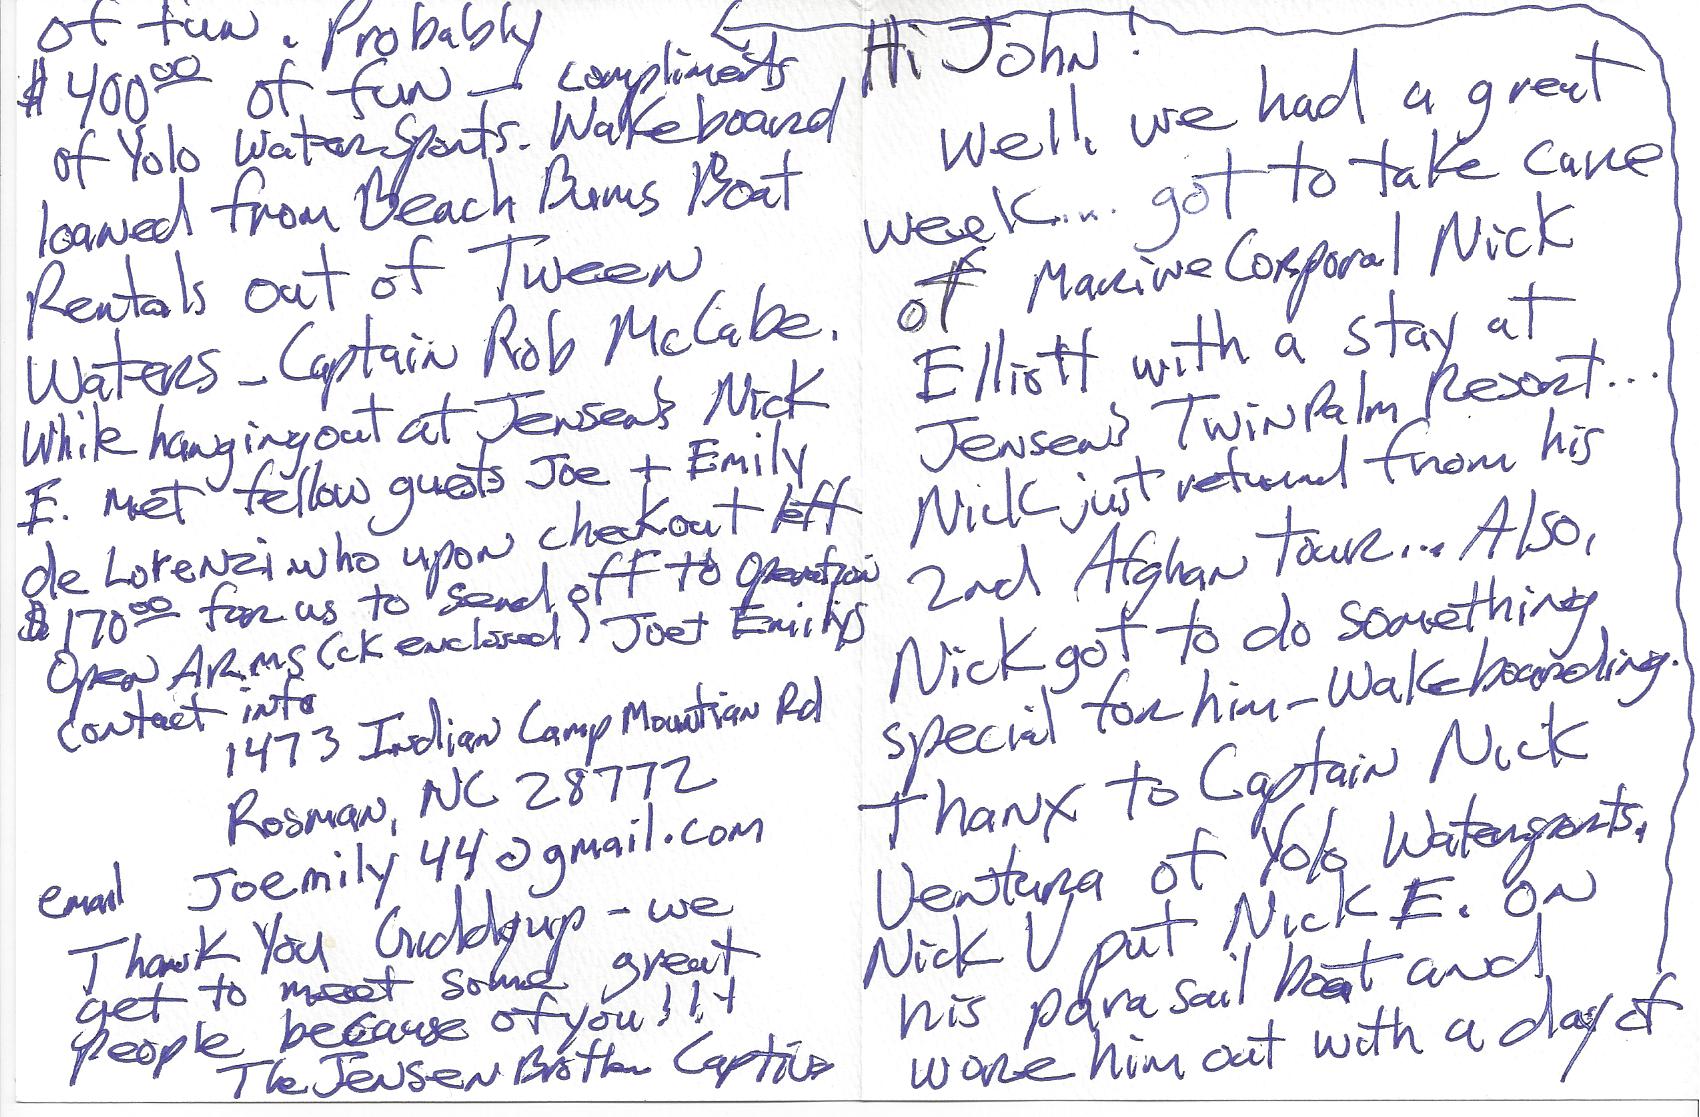 Hi John!
Well, we had a great
week.... got to take care
of Marine Corporal Nick
Elliott with a stay at
Jensen's Twin Palm Resort...
Nick just returned from his
2nd Afghan tour... Also,
Nick got to do something
special for him - Wakeboarding.
thanx to Captain Nick
Ventura of Yolo Watersports.
Nick V put Nick E. on
his parasail boat and
wore him out with a day of
of fun. Probably
$400⁰⁰ of fun - compliments
of Yolo Watersports. Wakeboard
loaned from Beach Bums Boat
Rentals out of Tween
Waters - Captain Rob McCabe.
While hanging out at Jensen's Nick
E. met fellow guests Joe + Emily
de Lorenzi who upon checkout left
$170⁰⁰ for us to send off to Operation
Open Arms (ck enclosed) Joe + Emily's
contact info
1473 Indian Camp Mountian Rd
Rosman, NC 28772
email Joemily44@gmail.com
Thank You Giddyup - we
get to meet some great
people because of you!!!
The Jensen Brothers Captiva